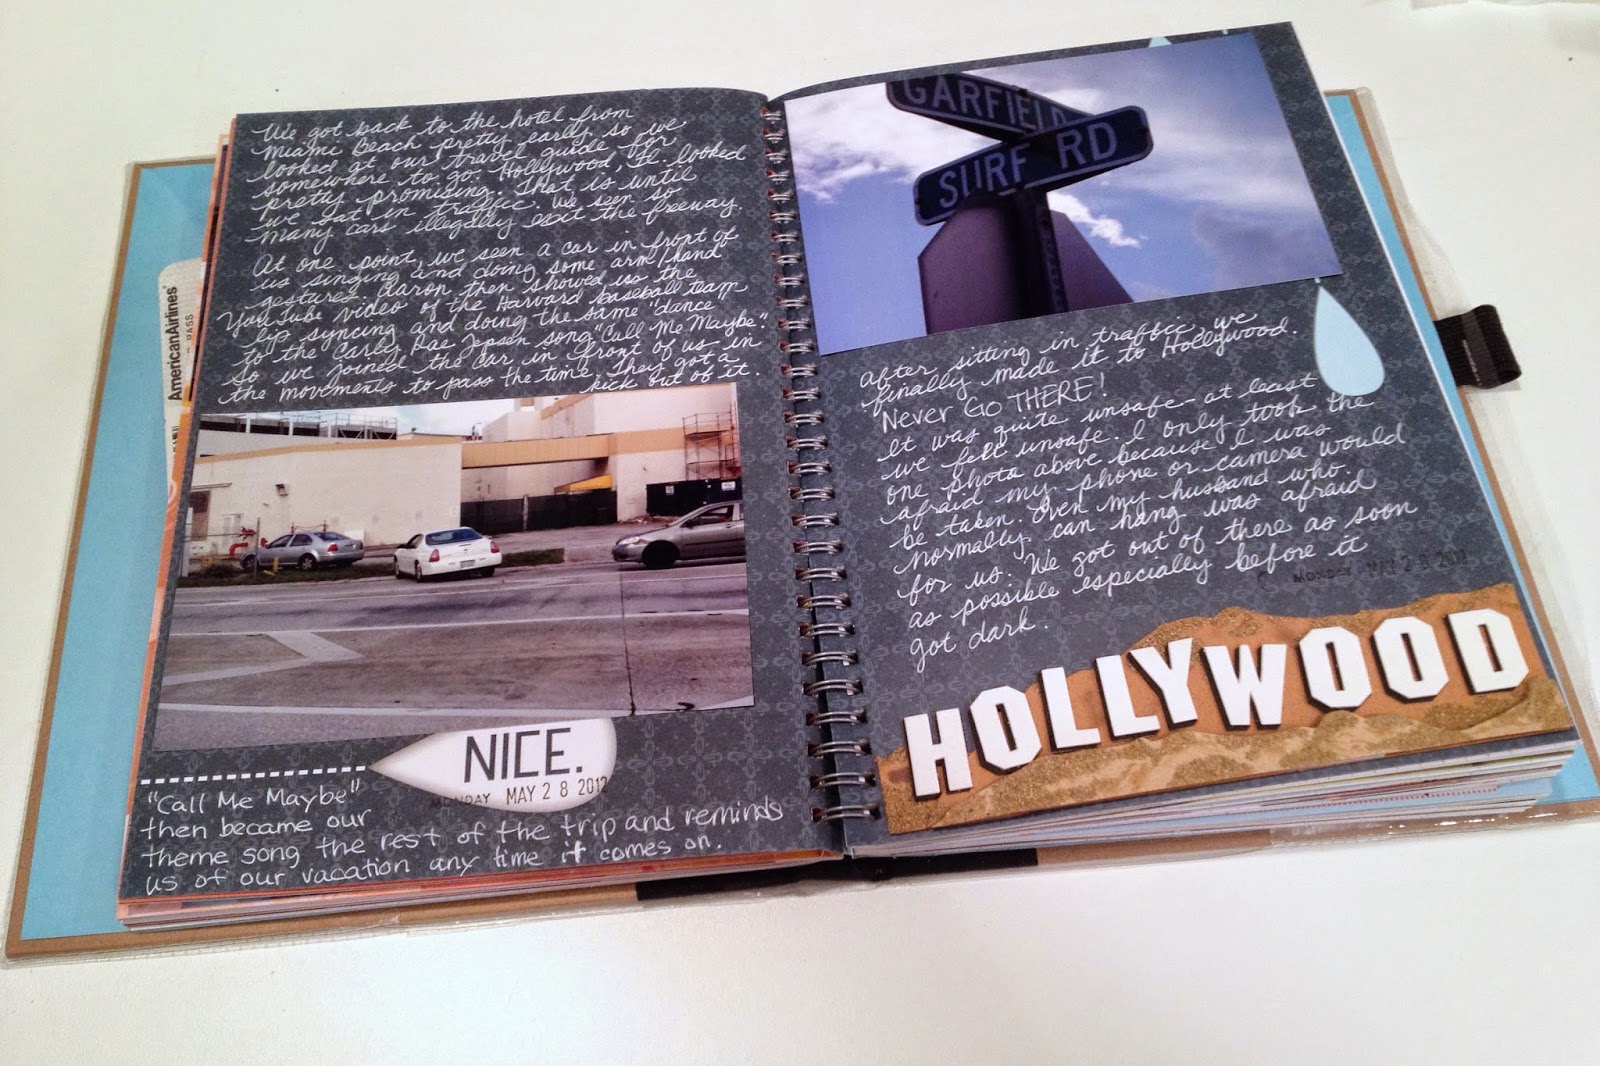 We got back to the hotel from
Miami Beach pretty early so we
looked at our travel guide for
somewhere to go. Hollywood, FL. looked
pretty promising. That is until
we sat in traffic. We seen so
many cars illegally exit the freeway.
At one point, we seen a car in front of
us singing and doing some arm/hand
gestures. Aaron then showed us the
YouTube video of the Harvard baseball team
lip syncing and doing the same "dance"
to the Carly Rae Jepsen song "Call Me Maybe".
So we joined the car in front of us in
the movements to pass the time. They got a
kick out of it.
AmericanAirlines
PASS
NICE.
MONDAY MAY 28 2012
"Call Me Maybe"
then became our
theme song the rest of the trip and reminds
us of our vacation any time it comes on.
GARFIELD
SURF RD
After sitting in traffic, we
finally made it to Hollywood.
Never Go THERE!
It was quite unsafe - at least
we felt unsafe. I only took the
one photo above because I was
afraid my phone or camera would
be taken. Even my husband who
normally can hang was afraid
for us. We got out of there as soon
as possible especially before it
got dark.
MONDAY MAY 28 2012
HOLLYWOOD